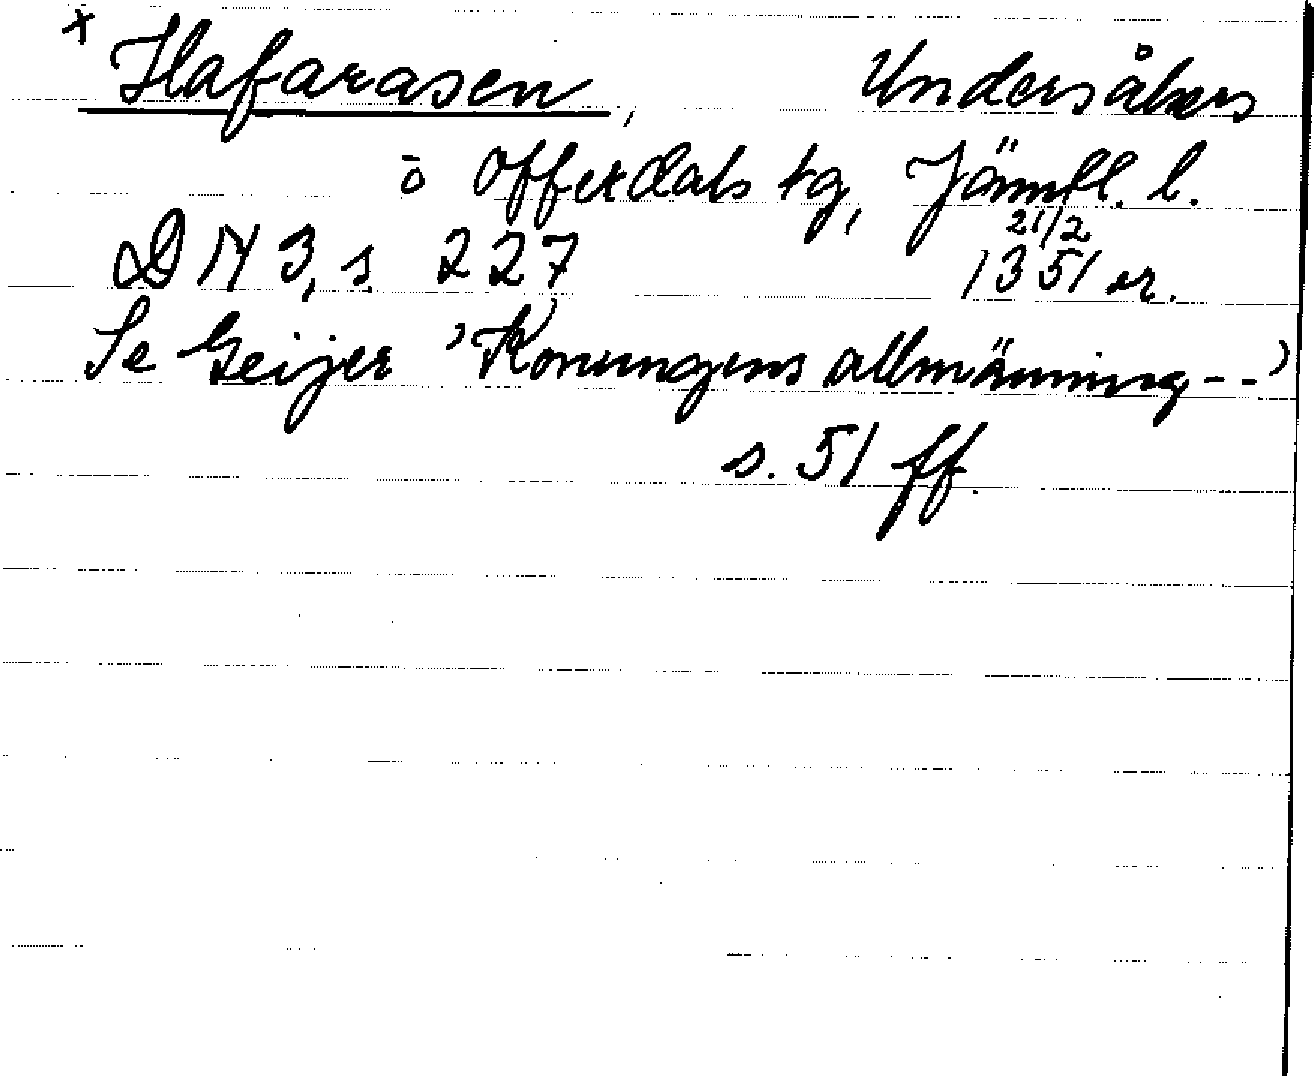 + Hafarasen, Undersåkers
o Offerdals tg, Jämtl. l.
21/2
DN 3, s 227 1351 or.
Se Geijer 'Konungens allmänning--'
s. 51 ff.